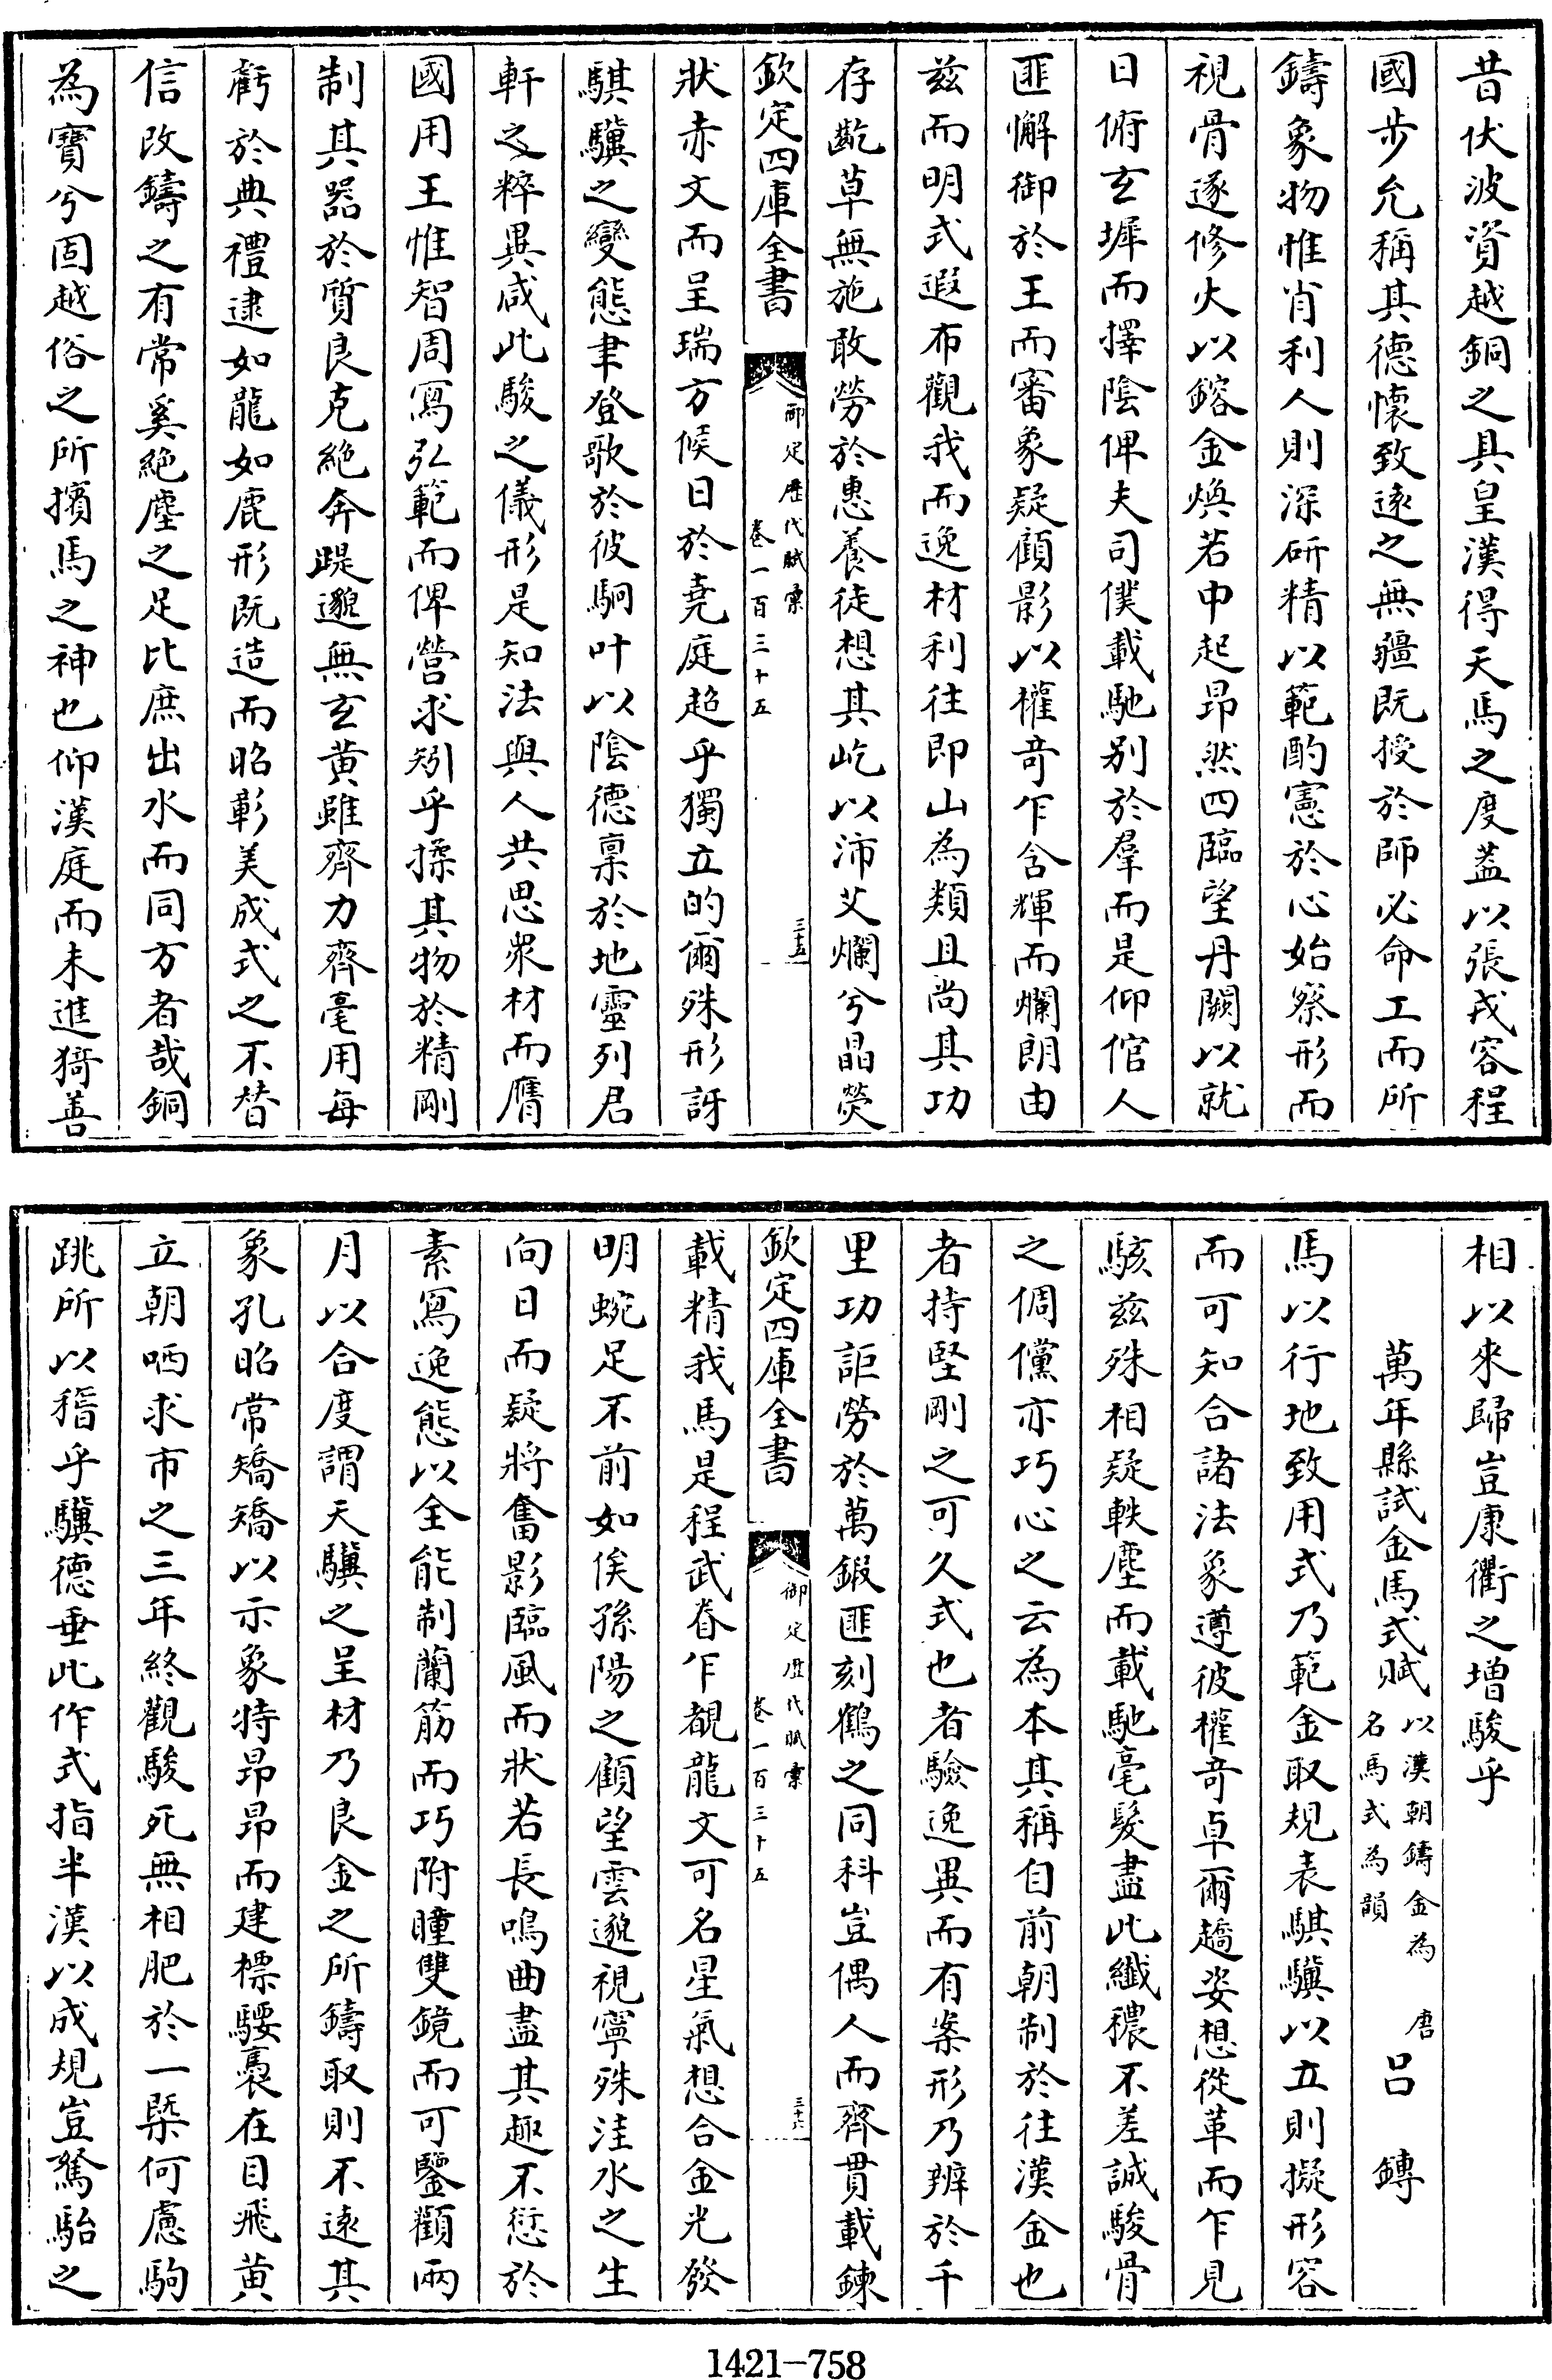 昔伏波資越銅之具皇漢得天馬之度蓋以張戎容程
國步允稱其德懷致逺之無疆既授於師必命工而所
鑄象物惟肖利人則深研精以範酌憲於心始察形而
視骨遂修火以鎔金煥若中起昻然四臨望丹闕以就
日俯玄墀而擇陰俾夫司僕載馳别於羣而是仰倌人
匪懈御於王而審象疑顧影以權竒乍含輝而爛朗由
兹而明式遐布觀我而逸材利往即山為類且尚其功
存齕草無施敢勞於惠養徒想其屹以沛艾爛兮晶熒
欽定四庫全書
御定歴代賦彚
卷一百三十五
三十五
狀赤文而呈瑞方候日於堯庭超乎獨立的爾殊形訝
騏驥之變態聿登歌於彼駉叶以陰德禀於地靈列君
軒之粹異咸此駿之儀形是知法與人共思衆材而膺
國用王惟智周寫弘範而俾營求矧乎揉其物於精剛
制其器於質良克絶奔踶邈無玄黄雖齊力齊毫用每
虧於典禮逮如龍如鹿形既造而昭彰美成式之不朁
信改鑄之有常奚絶塵之足比庶出水而同方者哉銅
為寶兮固越俗之所擯馬之神也仰漢庭而未進猗善
相以來歸豈康衢之增駿乎
萬年縣試金馬式賦
以漢朝鑄金為
名馬式為韻
唐
吕鏄
馬以行地致用式乃範金取規表騏驥以立則擬形容
而可知合諸法象遵彼權竒卓爾趫姿想從革而乍見
駭兹殊相疑軼塵而載馳毫髮盡此纎穠不差誠駿骨
之倜儻亦巧心之云為本其稱自前朝制於往漢金也
者持堅剛之可久式也者驗逸異而有案形乃辨於千
里功詎勞於萬鍜匪刻鶴之同科豈偶人而齊貫載鍊
欽定四庫全書
御定歴代賦彚
卷一百三十五
三十六
載精我馬是程武脊乍覩龍文可名星氣想合金光發
明蜿足不前如俟孫陽之顧望雲邈視寧殊洼水之生
向日而疑將奮影臨風而狀若長鳴曲盡其趣不愆於
素寫逸態以全能制蘭筋而巧附瞳雙鏡而可鑒顴兩
月以合度謂天驥之呈材乃良金之所鑄取則不逺其
象孔昭常矯矯以示象特昻昻而建標騕褭在目飛黄
立朝哂求市之三年終觀駿死無相肥於一槩何慮駒
跳所以稽乎驥德垂此作式指半漢以成規豈駑駘之
1421-758